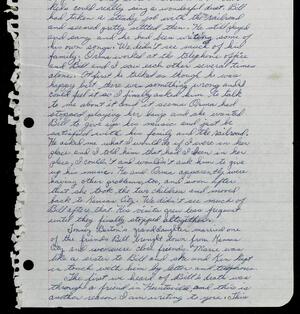 kids could really sing a wonderful duet. Bill
had taken a steady job with the railroad
and seemed pretty settled then. He still played
and sang and she had been writing some of
his own songs. We didn't see much of his
family; Orma worked at the telephone office
and Bill and I saw each other several times
alone. At first he talked as though he was
happy but there was something wrong and I
could tell it so I finally asked him to talk
to me about it and it seems Orma had
stopped playing her banjo and she wanted
Bill to give up his music and just be
satisfied with his family and the railroad.
He asked me what I would do if I were in her
place and I told him that had I been in her
place, I couldn't and wouldn't ask him to give
up his music. He and Orma apparently were
having other problems, too, and soon after
that she took the two children and moved
back to Kansas City. We didn't see much of
Bill after that. His visits grew less frequent
until they finally stopped altogether.
Irving Barton's granddaughter married one
of the friends Bill brought down from Kansas
City and
was
like a sister to Bill and she and Ken kept
in touch with him by letter and telephone.
The first we heard of Bill's death was
through a friend in Huntsville, and this is
another reason I am writing to you. This